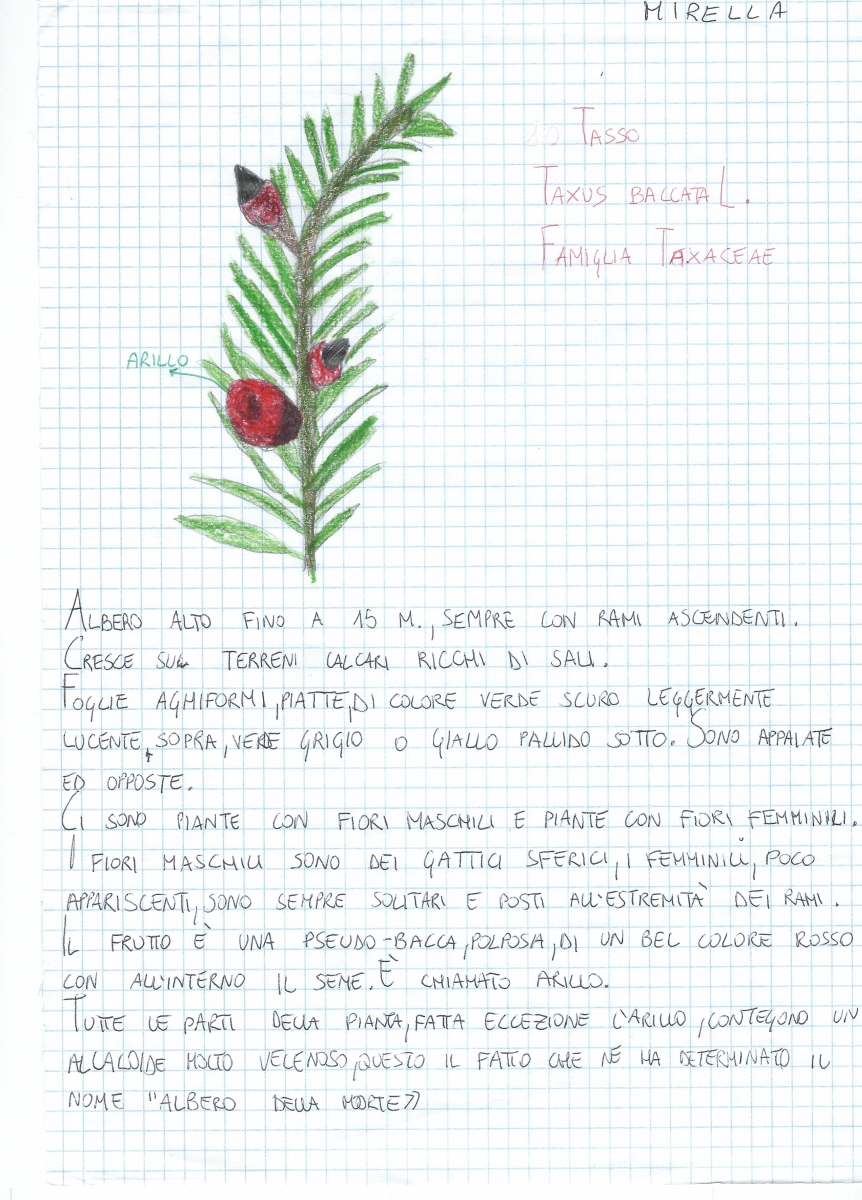 MIRELLA
TASSO
TAXUS BACCATA L.
FAMIGLIA TAXACEAE
ARILLO
ALBERO ALTO FINO A 15 M., SEMPRE CON RAMI ASCENDENTI.
CRESCE SU TERRENI CALCARI RICCHI DI SALI.
FOGLIE AGHIFORMI, PIATTE, DI COLORE VERDE SCURO LEGGERMENTE
LUCENTE, SOPRA, VERDE GRIGIO O GIALLO PALLIDO SOTTO. SONO APPAIATE
ED OPPOSTE.
CI SONO PIANTE CON FIORI MASCHILI E PIANTE CON FIORI FEMMINILI.
I FIORI MASCHILI SONO DEI GATTICI SFERICI, I FEMMINILI, POCO
APPARISCENTI, SONO SEMPRE SOLITARI E POSTI ALL'ESTREMITÀ DEI RAMI.
IL FRUTTO È UNA PSEUDO-BACCA, POLPOSA, DI UN BEL COLORE ROSSO
CON ALL'INTERNO IL SEME. È CHIAMATO ARILLO.
TUTTE LE PARTI DELLA PIANTA, FATTA ECCEZIONE L'ARILLO, CONTEGONO UN
ALCALOIDE MOLTO VELENOSO, QUESTO IL FATTO CHE NE HA DETERMINATO IL
NOME "ALBERO DELLA MORTE»